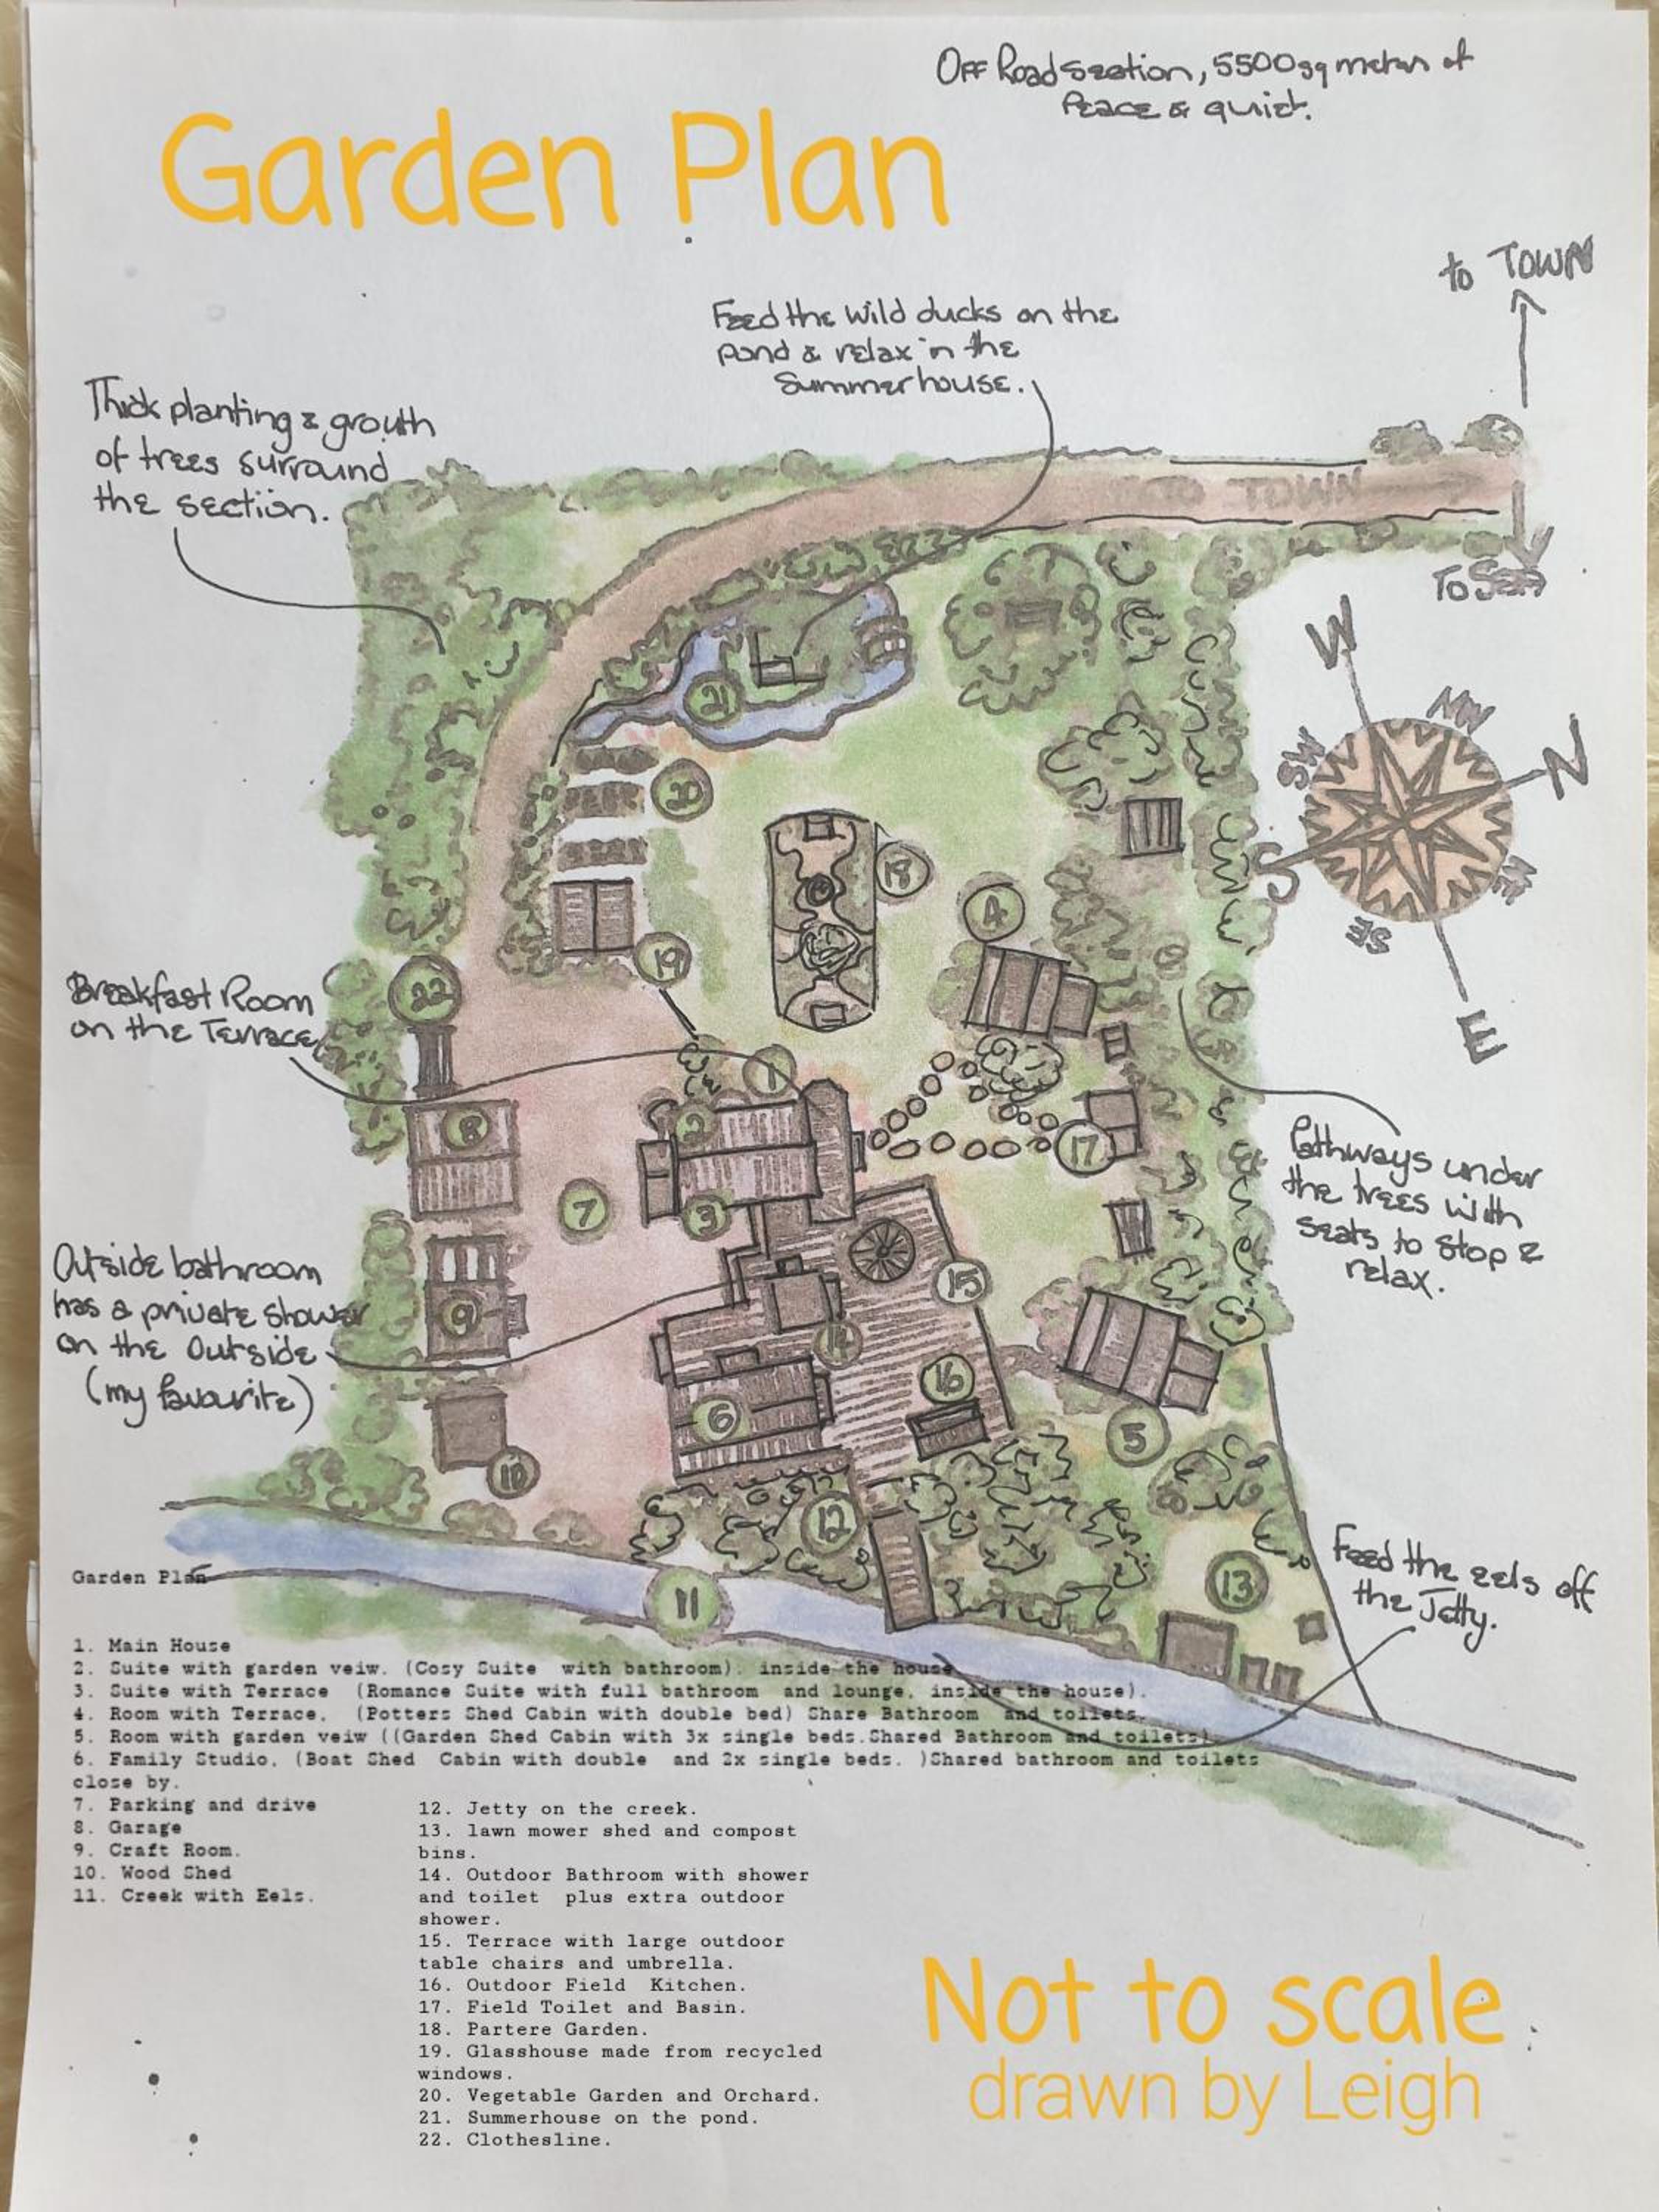 Off Road Section, 5500sq meters of
Peace & quiet.
Garden Plan
to TOWN
Feed the wild ducks on the
pond & relax in the
Summerhouse.
Thick planting & grouth
of trees surround
the section.
TO TOWN
To Sea
W
NW
N
SW
S
SE
E
21
20
18
4
19
22
Breakfast Room
on the Terrace
1
2
8
17
Pathways under
the trees with
seats to stop &
relax.
7
3
15
Outside bathroom
has a private shower
on the outside
(my favourite)
9
14
16
6
5
10
12
Feed the eels off
the Jetty.
13
11
Garden Plan
1. Main House
2. Suite with garden veiw. (Cosy Suite with bathroom). inside the house
3. Suite with Terrace (Romance Suite with full bathroom and lounge, inside the house).
4. Room with Terrace. (Potters Shed Cabin with double bed) Share Bathroom and toilets.
5. Room with garden veiw ((Garden Shed Cabin with 3x single beds.Shared Bathroom and toilets)
6. Family Studio. (Boat Shed Cabin with double and 2x single beds. )Shared bathroom and toilets
close by.
7. Parking and drive
8. Garage
9. Craft Room.
10. Wood Shed
11. Creek with Eels.
12. Jetty on the creek.
13. lawn mower shed and compost
bins.
14. Outdoor Bathroom with shower
and toilet plus extra outdoor
shower.
15. Terrace with large outdoor
table chairs and umbrella.
16. Outdoor Field Kitchen.
17. Field Toilet and Basin.
18. Partere Garden.
19. Glasshouse made from recycled
windows.
20. Vegetable Garden and Orchard.
21. Summerhouse on the pond.
22. Clothesline.
Not to scale
drawn by Leigh